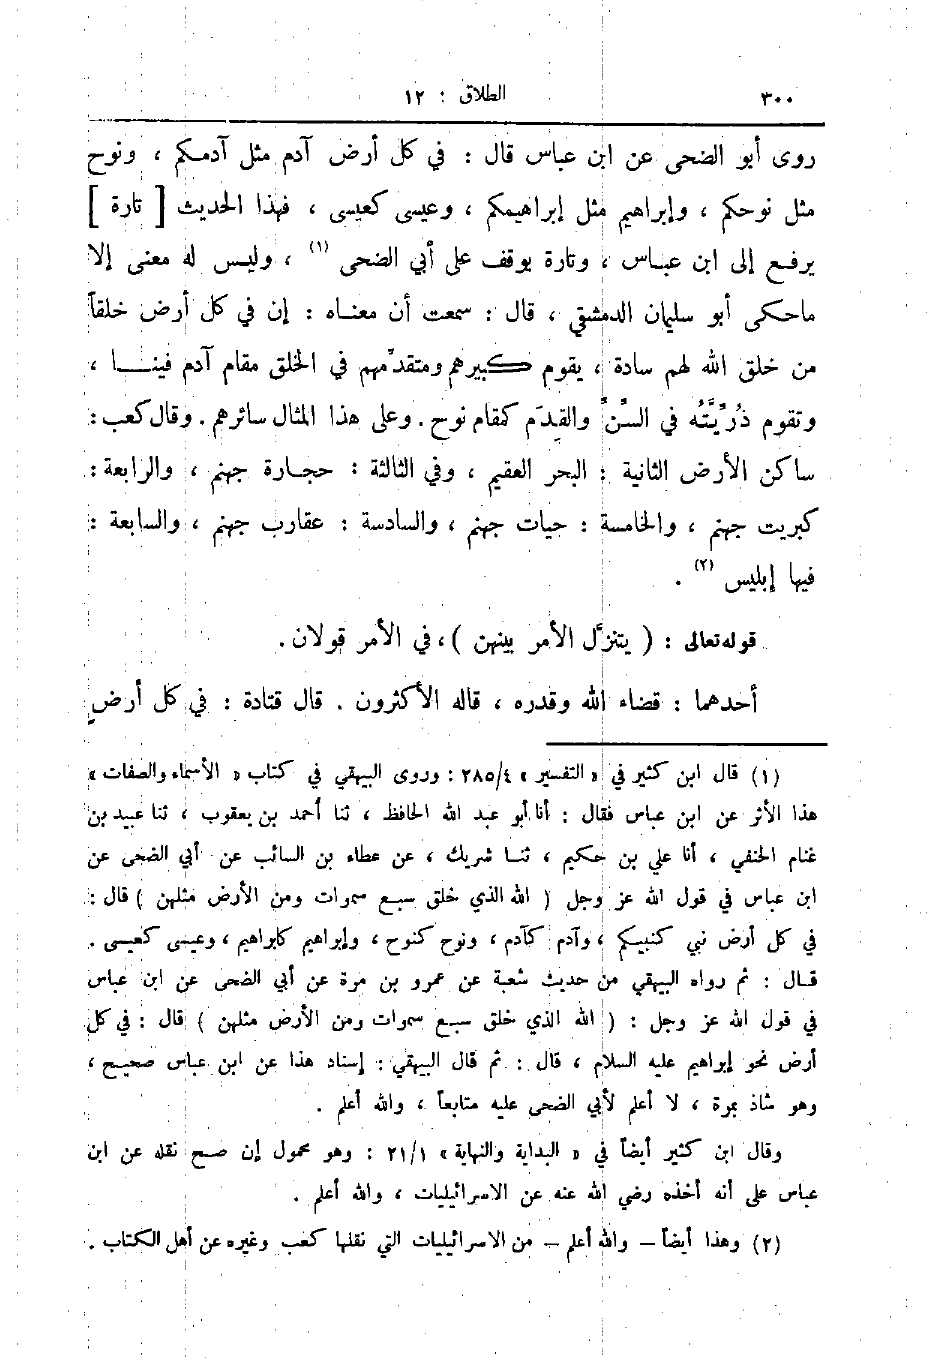 ٣٠٠ الطلاق : ١٢
روى أبو الضحى عن ابن عباس قال : في كل أرض آدم مثل آدمكم ، ونوح
مثل نوحكم ، وإبراهيم مثل إبراهيمكم ، وعيسى كعيسى ، فهذا الحديث [ تارة ]
يرفع إلى ابن عباس ، وتارة يوقف على أبي الضحى (١) ، وليس له معنى إلا
ماحكى أبو سليمان الدمشقي ، قال : سمعت أن معناه : إن في كل أرض خلقاً
من خلق الله لهم سادة ، يقوم كبيرهم ومتقدّمهم في الخلق مقام آدم فينا ،
وتقوم ذُرِّيَّتُه في السِّنِّ والقِدَم كمقام نوح . وعلى هذا المثال سائرهم . وقال كعب :
ساكن الأرض الثانية : البحر العقيم ، وفي الثالثة : حجارة جهنم ، والرابعة :
كبريت جهنم ، والخامسة : حيات جهنم ، والسادسة : عقارب جهنم ، والسابعة :
فيها إبليس (٢) .
قوله تعالى : ( يتنزَّل الأمر بينهن ) ، في الأمر قولان .
أحدهما : قضاء الله وقدره ، قاله الأكثرون . قال قتادة : في كل أرض
(١) قال ابن كثير في « التفسير » ٢٨٥/٤ : وروى البيهقي في كتاب « الأسماء والصفات »
هذا الأثر عن ابن عباس فقال : أنا أبو عبد الله الحافظ ، ثنا أحمد بن يعقوب ، ثنا عبيد بن
غنام الحنفي ، أنا علي بن حكيم ، ثنا شريك ، عن عطاء بن السائب عن أبي الضحى عن
ابن عباس في قول الله عز وجل ( الله الذي خلق سبع سموات ومن الأرض مثلهن ) قال :
في كل أرض نبي كنبيكم ، وآدم كآدم ، ونوح كنوح ، وإبراهيم كابراهيم ، وعيسى كعيسى .
قال : ثم رواه البيهقي من حديث شعبة عن عمرو بن مرة عن أبي الضحى عن ابن عباس
في قول الله عز وجل : ( الله الذي خلق سبع سموات ومن الأرض مثلهن ) قال : في كل
أرض نحو إبراهيم عليه السلام ، قال : ثم قال البيهقي : إسناد هذا عن ابن عباس صحيح ،
وهو شاذ بمرة ، لا أعلم لأبي الضحى عليه متابعاً ، والله أعلم .
وقال ابن كثير أيضاً في « البداية والنهاية » ٢١/١ : وهو محمول إن صح نقله عن ابن
عباس على أنه أخذه رضي الله عنه عن الاسرائيليات ، والله أعلم .
(٢) وهذا أيضاً – والله أعلم – من الاسرائيليات التي نقلها كعب وغيره عن أهل الكتاب .